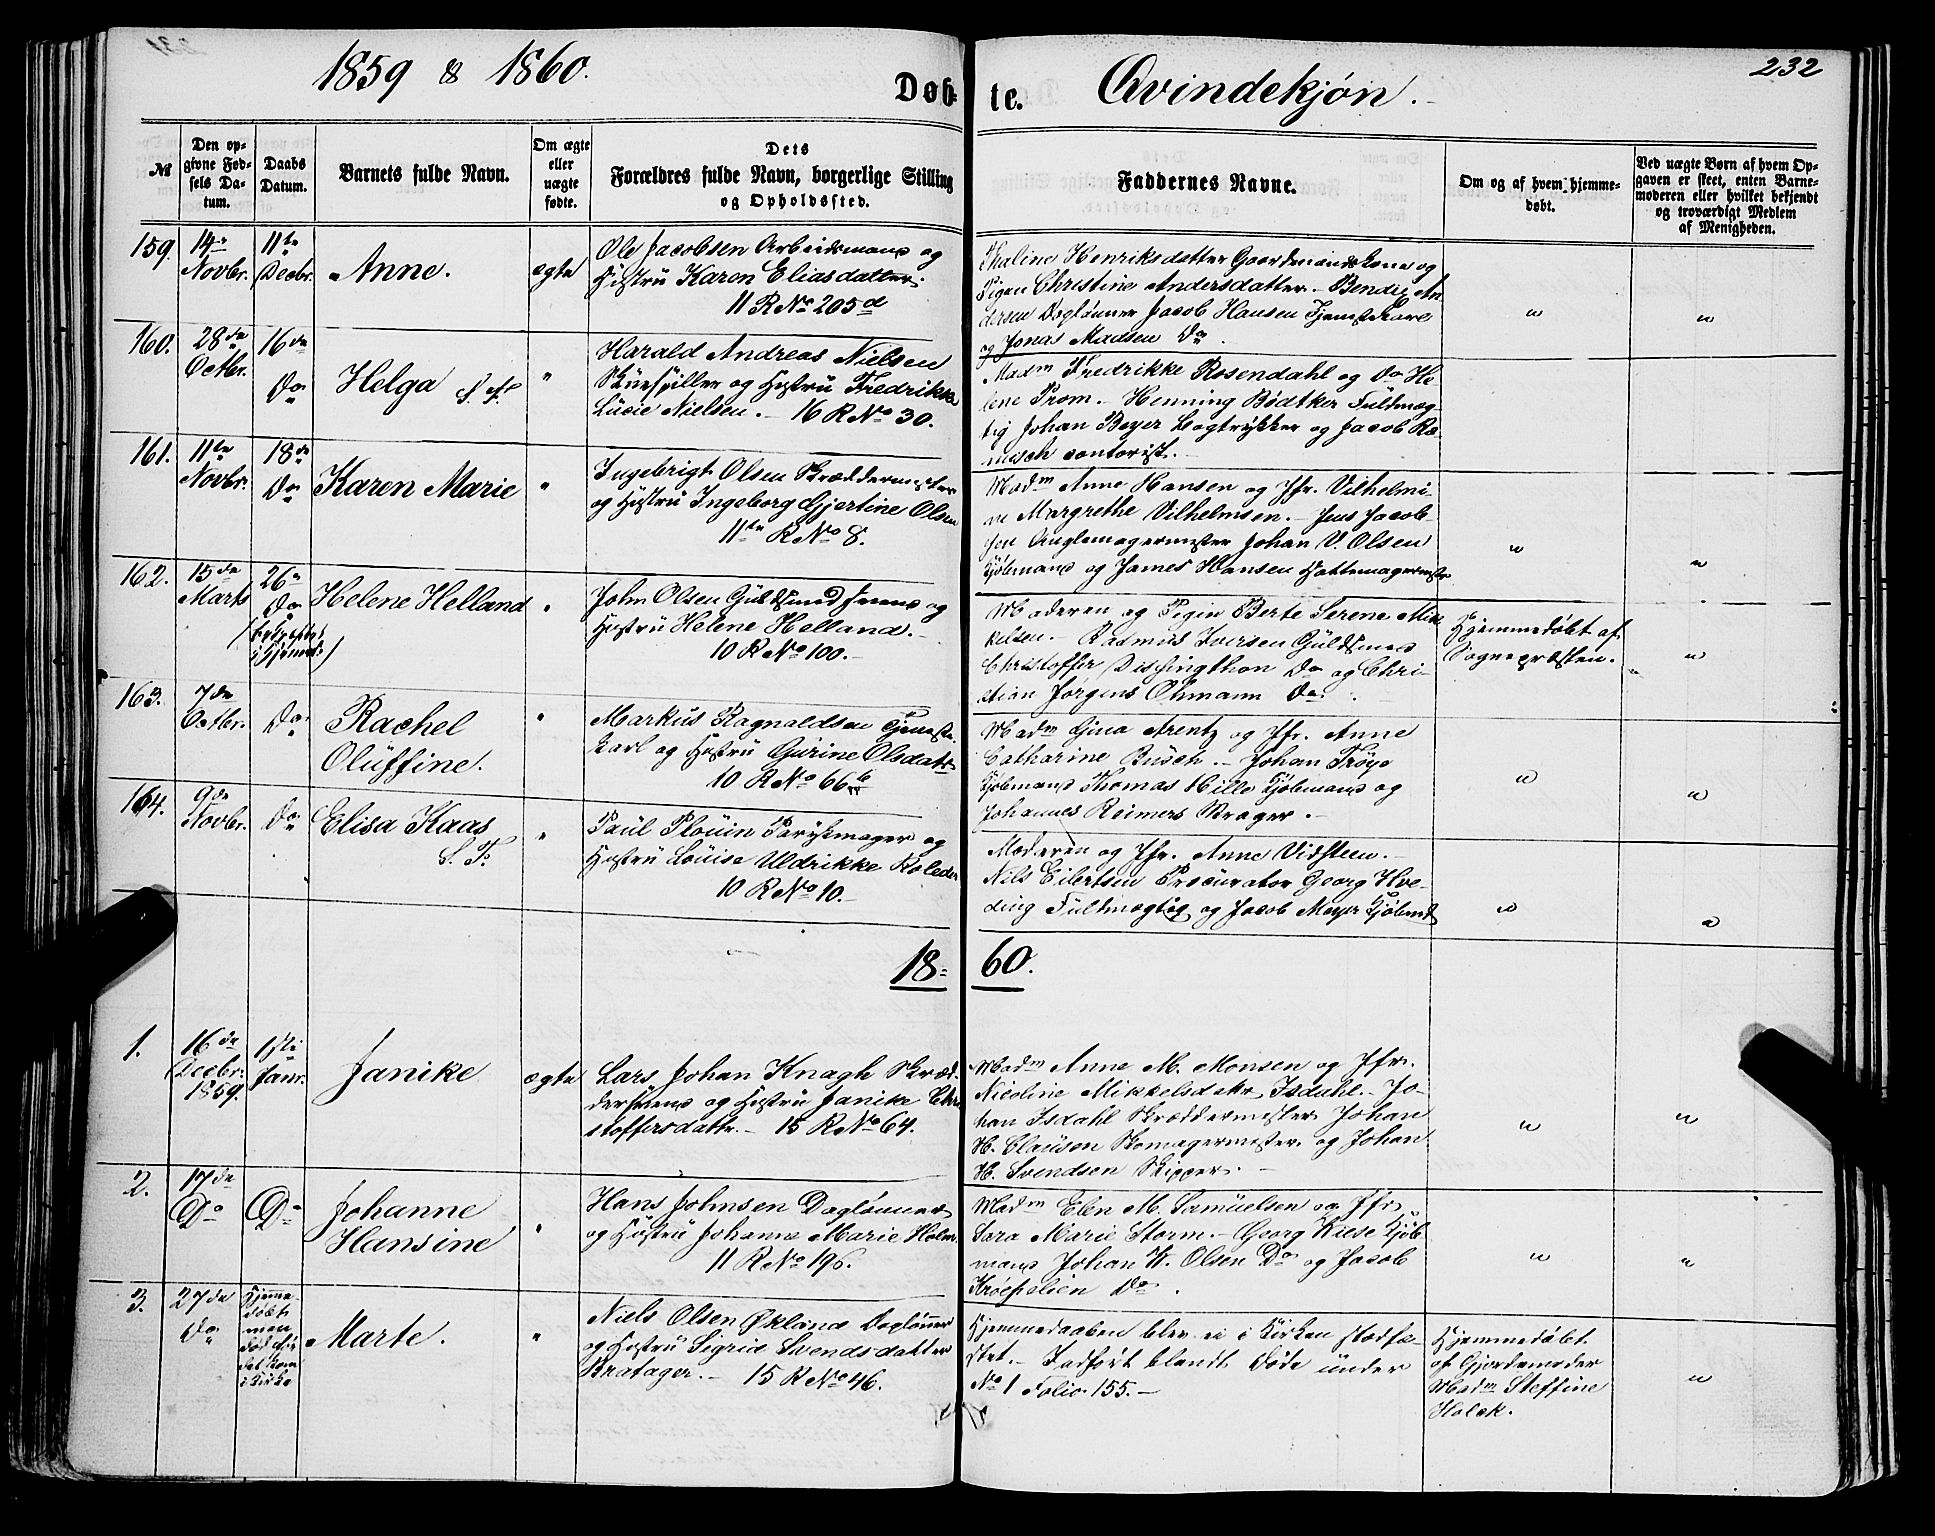 1859 & 1860.
Døb-
te.
Qvindekjøn.
232
№
Den opgivne Fødsels Datum.
Daabs Datum.
Barnets fulde Navn.
Om ægte eller uægte fødte.
Dets Forældres fulde Navn, borgerlige Stilling og Opholdssted.
Faddernes Navne.
Om og af hvem hjemmedøbt.
Ved uægte Børn af hvem Opgaven er skeet, enten Barnemoderen eller hvilket bekjendt og troværdigt Medlem af Menigheden.
159.
14de Novbr.
11te Decbr.
Anne.
ægte
Ole Jacobsen Arbeidsmand og
Hustru Karen Eliasdatter.
11 R No 205d
Thaline Henriksdatter Gaardmandskone og
Pigen Christine Andersdatter. Bendix An-
dersen Daglønner Jacob Hansen Tjenestkarl
og Jonas Madsen Do.
"
"
160.
28de Octbr.
16de Do
Helga
"
Harald Andreas Nielsen
Skuespiller og Hustru Fredrikke
Lucie Nielsen. 16 R No 30.
Madm Fredrikke Rosendahl og Do He-
lene Prom. Henning Bødtker Fuldmæg-
tig Johan Beyer Bogtrykker og Jacob Ra-
masch contorist.
161.
11te Novbr.
18de Do
Karen Marie
"
Ingebrigt Olsen Skræddermester
og Hustru Ingeborg Gjertine Olsen
11te R No 8.
Madm Anne Hansen og Jfr. Vilhelmi-
ne Margrethe Vilhelmsen. Jens Jacob-
sen mester Johan V. Olsen
Kjøbmand og James Hansen Hattemagermester
"
"
162.
15de Marts
26de Do
Helene Helland
"
John Olsen Guldsmedsvend og
Hustru Helene Helland.
10 R No 100.
Moderen og Pigen Berte Serene Mik-
kelsen. Rasmus Iversen Guldsmed
Christoffer Dishingthon Do og Chri-
stian Jørgens Ohmann Do.
Hjemmedøbt af
Sognepræsten.
"
163.
7de Octbr.
Do
Rachel
Oluffine.
"
Markus Ragnaldsen Tjeneste-
karl og Hustru Gurine Olsdatr
10 R No 66b
Madm Gina Arentz og Jfr. Anne
Catharine Busch. Johan Trøye
Kjøbmand Thomas Hille Kjøbmand og
Johannes Reimers Vrager.
"
"
164.
9de Novbr.
Do
Elisa Kaas
S. T.
"
Paul Plouin Parykmager og
Hustru Louise Uldrikke
10 R No 10.
Moderen og Jfr. Anne Vidsteen.
Nils Eilertsen Procurator Georg Hve-
ding Fuldmægtig og Jacob Meyer Kjøbmd
"
"
18-
60.
1.
16de Decbr. 1859.
1ste Janr.
Janike
ægte
Lars Johan Knagh Skræd-
dersvend og Hustru Janike Chri-
stoffersdattr. 15 R No 64.
Madm Anne M. Monsen og Jfr.
Nicoline Mikkelsdatr Isdahl. Jo-
han Isdahl Skræddermester Johan
H. Clausen Skomagermester og Johan
H. Svendsen Skipper.
"
"
2.
17de Do
Do
Johanne
Hansine
"
Hans Johnsen Dagløner
og Hustru Johanne Marie Holm.
11 R No 196.
Madm Elen M. Samuelsen og Jfr.
Sara Marie Storm. Georg Wiese Kjøb-
mand Johan W. Olsen Do og Jacob
Krøepelien Do.
"
"
3.
27de Do
Hjemme-
døbt
men
død før
det kom
i Kirke
Marte.
"
Niels Olsen Økland Dagløner
og Hustru Sigrid Svendsdatter
Bratager. 15 R No 46.
Hjemmedaaben blev ei i Kirken stadfæ-
stet. Indført blandt Døde under
No 1 Folio. 155.
Hjemmedøbt
af Gjordemoder
Madm Steffine
Holck.
"